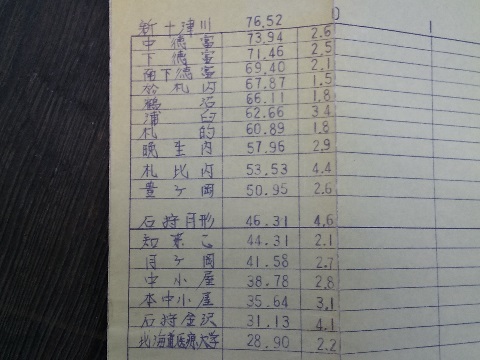 新十津川 76.52 0
中徳富 73.94 2.6 1
下徳富 71.46 2.5
南下徳富 69.40 2.1
於札内 67.87 1.5
鶴沼 66.11 1.8
浦臼 62.66 3.4
札的 60.89 1.8
晩生内 57.96 2.9
札比内 53.53 4.4
豊ヶ岡 50.95 2.6
石狩月形 46.31 4.6
知来乙 44.31 2.1
月ヶ岡 41.58 2.7
中小屋 38.78 2.8
本中小屋 35.64 3.1
石狩金沢 31.13 4.1
北海道医療大学 28.90 2.2